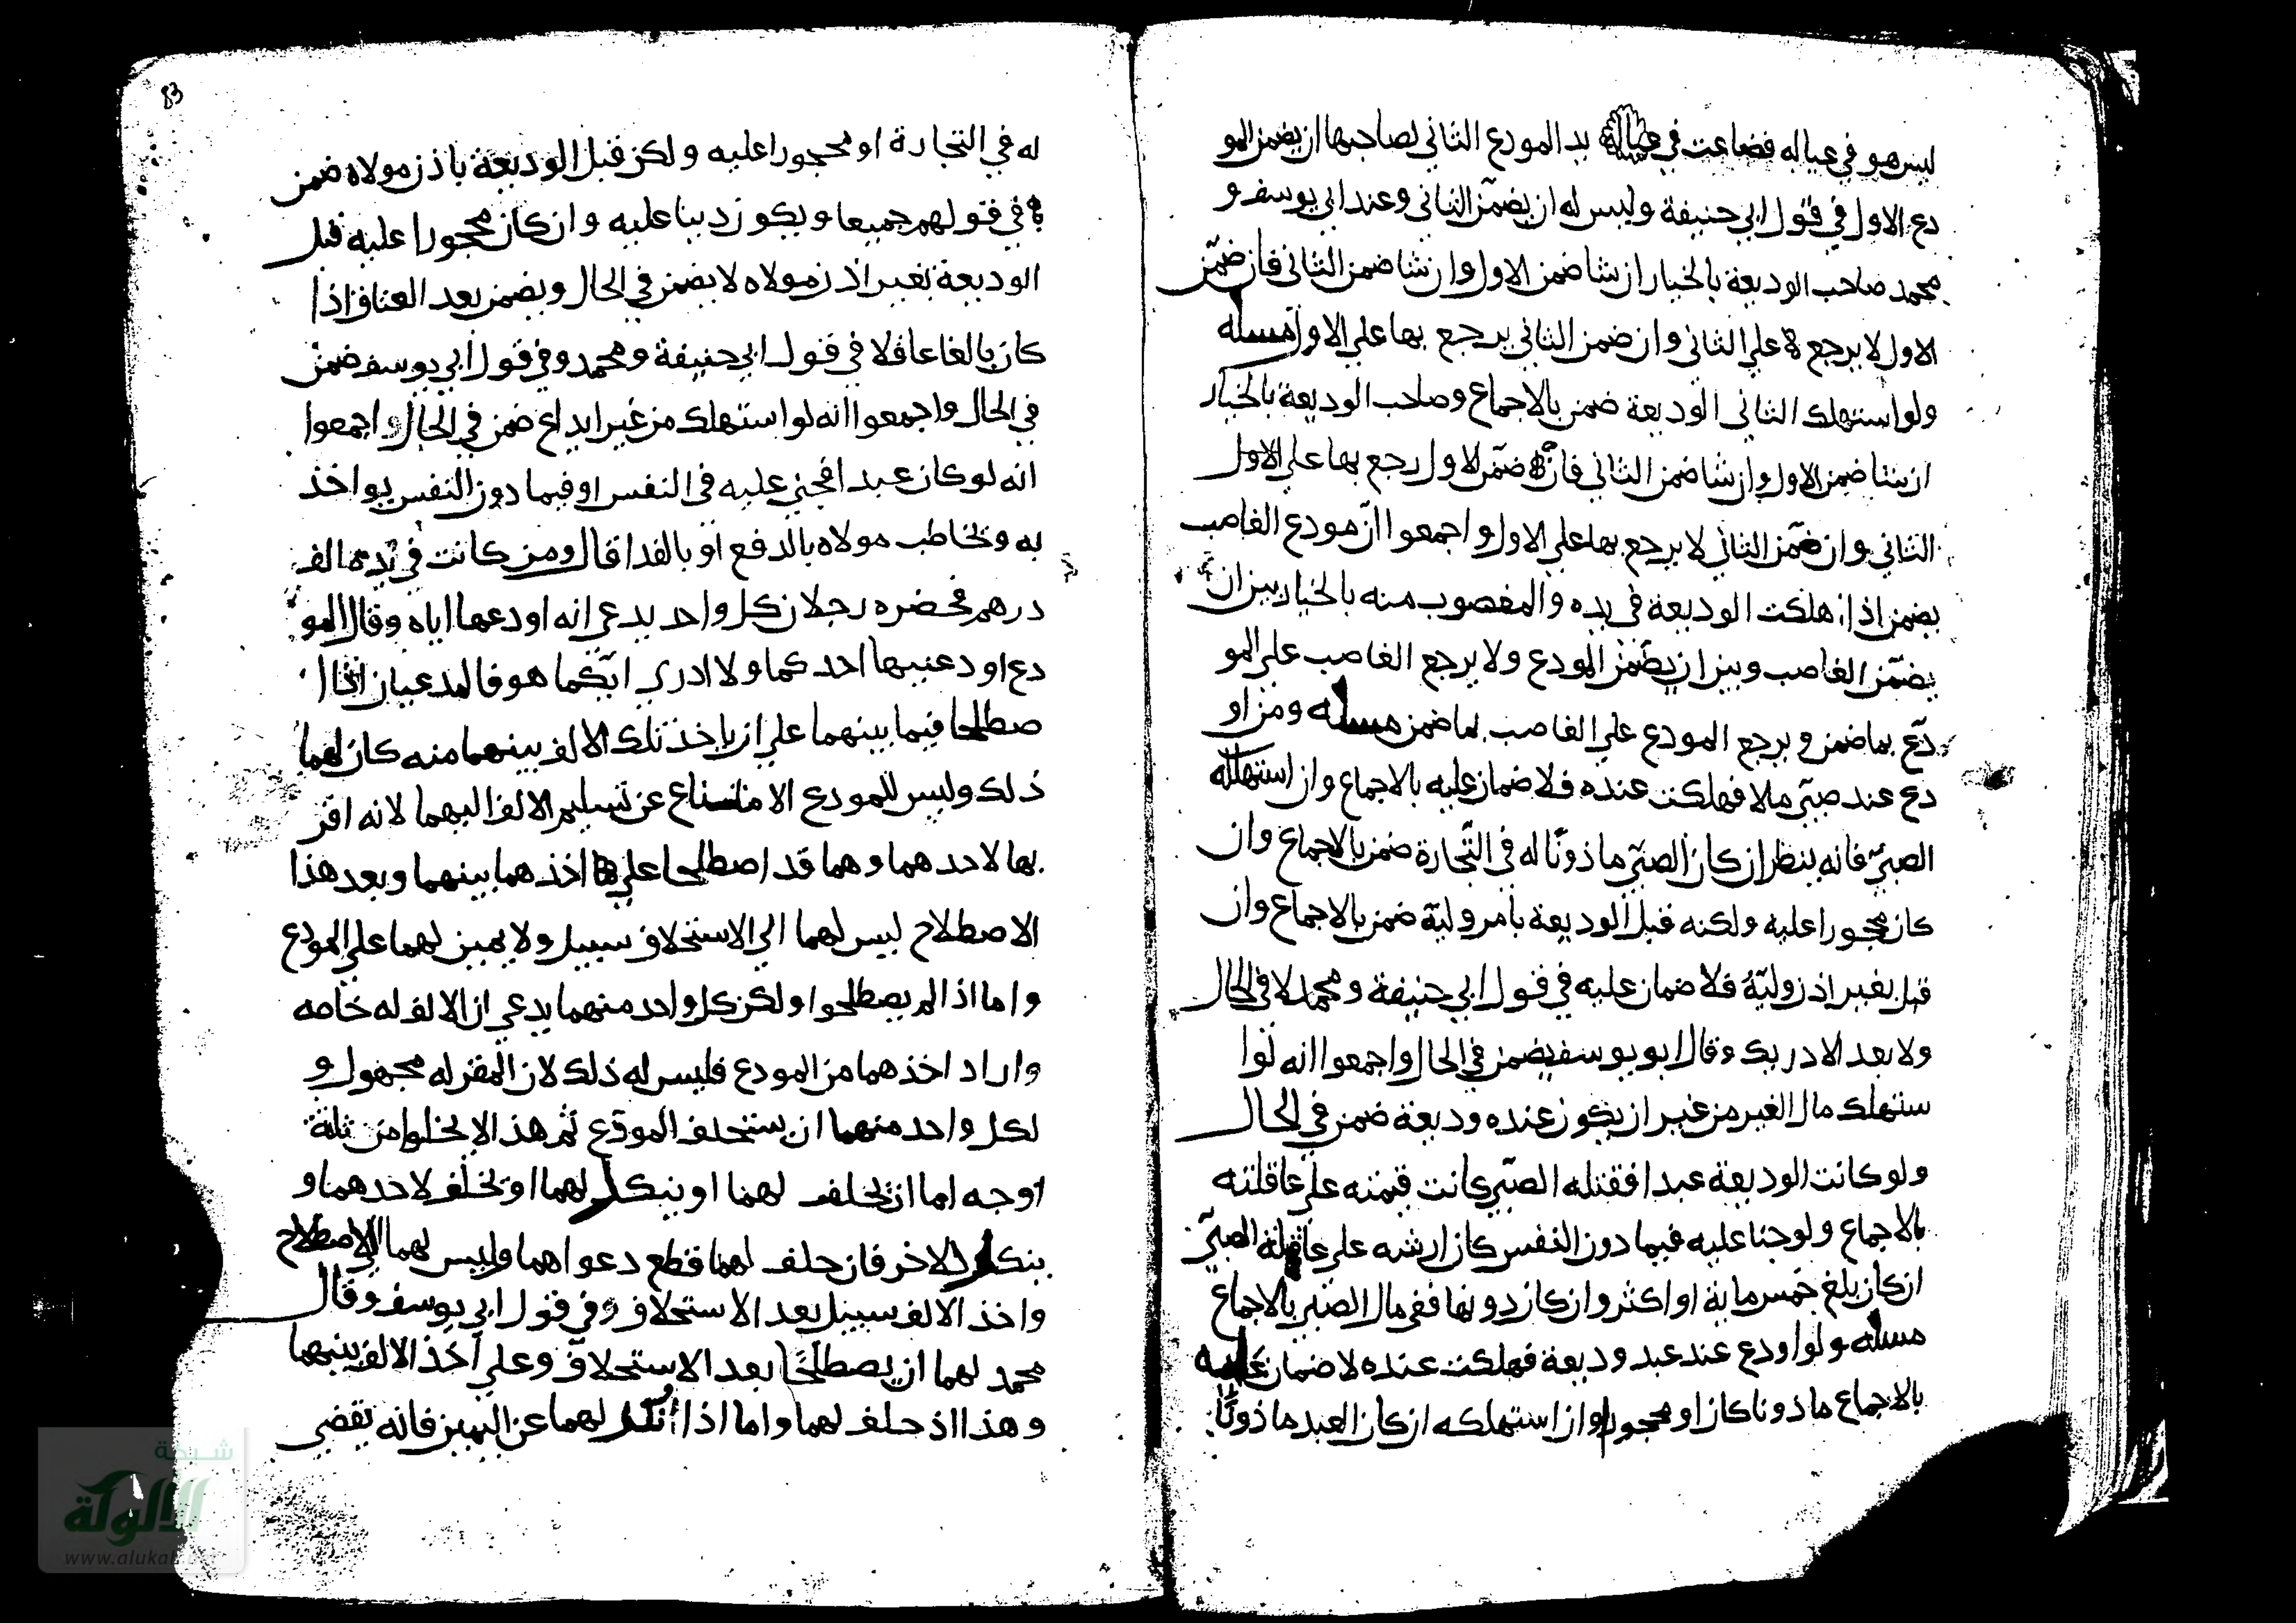 ليس هو في عياله فضاعت في يد المودع الثاني لصاحبها ان يضمن المو
دع الاول في قول ابي حنيفة وليس له ان يضمّن الثاني وعند ابي يوسف و
محمد صاحب الوديعة بالخيار ان شا ضمن الاول وان شا ضمن الثاني فان ضمّن
الاول لا يرجع على الثاني وان ضمن الثاني يرجع بها على الاول مسله
ولو استهلك الثاني الوديعة ضمن بالاجماع وصاحب الوديعة بالخيار
ان شا ضمن الاول وان شا ضمن الثاني فان ضمّن الاول رجع بها على الاول
الثاني وان ضمّن الثاني لا يرجع بها على الاول واجمعوا انّ مودع الغاصب
يضمن اذا هلكت الوديعة في يده والمغصوب منه بالخيار بين ان
يضمّن الغاصب وبين ان يضمّن المودع ولا يرجع الغاصب على المو
دع بما ضمن ويرجع المودع على الغاصب بما ضمن مسله ومن او
دع عند صبيّ مالا فهلكت عنده فلا ضمان عليه بالاجماع وان استهلكه
الصبيّ فانه ينظر ان كان الصبيّ ماذونًا له في التّجارة ضمن بالاجماع وان
كان محجورا عليه ولكنه قبل الوديعة بامر وليّه ضمن بالاجماع وان
قبل بغير اذن وليّه فلا ضمان عليه في قول ابي حنيفة ومحمد لا في الحال
ولا بعد الادراك وقال ابو يوسف يضمن في الحال واجمعوا انه لوا
ستهلك مال الغير من غير ان يكون عنده وديعة ضمن في الحال
ولو كانت الوديعة عبدا فقتله الصبّي كانت قيمته على عاقلته
بالاجماع ولو جنا عليه فيما دون النفس كان ارشه على عاقلة الصبيّ
ان كان بلغ خمس ماية او اكثر وان كان دونها ففي مال الصبي بالاجماع
مسله ولو اودع عند عبد وديعة فهلكت عنده لا ضمان عليه
بالاجماع ماذونا كان او محجورا وان استهلكه ان كان العبد ماذونًا
83
له في التجارة او محجورا عليه ولكن قبل الوديعة باذن مولاه ضمن
في قولهم جميعا ويكون دينا عليه وان كان محجورا عليه قبل
الوديعة بغير اذن مولاه لا يضمن في الحال ويضمن بعد العتاق اذا
كان بالغا عاقلا في قول ابي حنيفة ومحمد وفي قول ابي يوسف ضمن
في الحال واجمعوا انه لو استهلك من غير ايداع ضمن في الحال واجمعوا
انه لو كان عبدا فجني عليه في النفس او فيما دون النفس يواخذ
به ويخاطب مولاه بالدفع او بالفدا قال ومن كانت في يده الف
درهم فحضره رجلان كل واحد يدعي انه اودعها اياه وقال المو
دع اودعنيها احدكما ولا ادري ايّكما هو فالمدعيان
صطلحا فيما بينهما على ان ياخذ تلك الالف بينهما منه كان لهما
ذلك وليس للمودع الامتناع عن تسليم الالف اليهما لانه اقر
بها لاحدهما وهما قد اصطلحا على اخذهما بينهما وبعد هذا
الاصطلاح ليس لهما الى الاستحلاف سبيل ولا يمين لهما على المودع
واما اذا لم يصطلحوا ولكن كل واحد منهما يدعي ان الالف له خاصه
واراد اخذهما من المودع فليس له ذلك لان المقر له مجهول و
لكل واحد منهما ان يستحلف المودع ثم هذا لا يخلوا من ثلثة
اوجه اما ان يحلف لهما او ينكل لهما او يحلف لاحدهما و
ينكل للاخر فان حلف لهما قطع دعواهما وليس لهما الى الاصطلاح
واخذ الالف سبيل بعد الاستحلاف وفي قول ابي يوسف وقال
محمد لهما ان يصطلحا بعد الاستحلاف وعلى اخذ الالف بينهما
وهذا اذ حلف لهما واما اذا نكل لهما عن اليمين فانه يقضي
شبكة
الألوكة